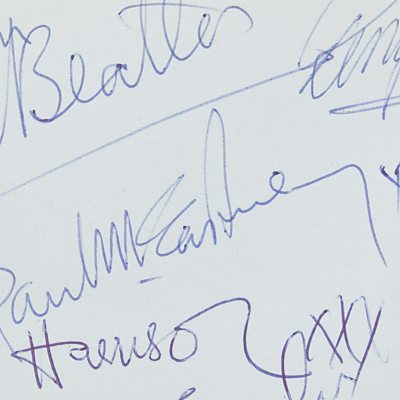 Beatles
Paul McCartney
Harrison xxx